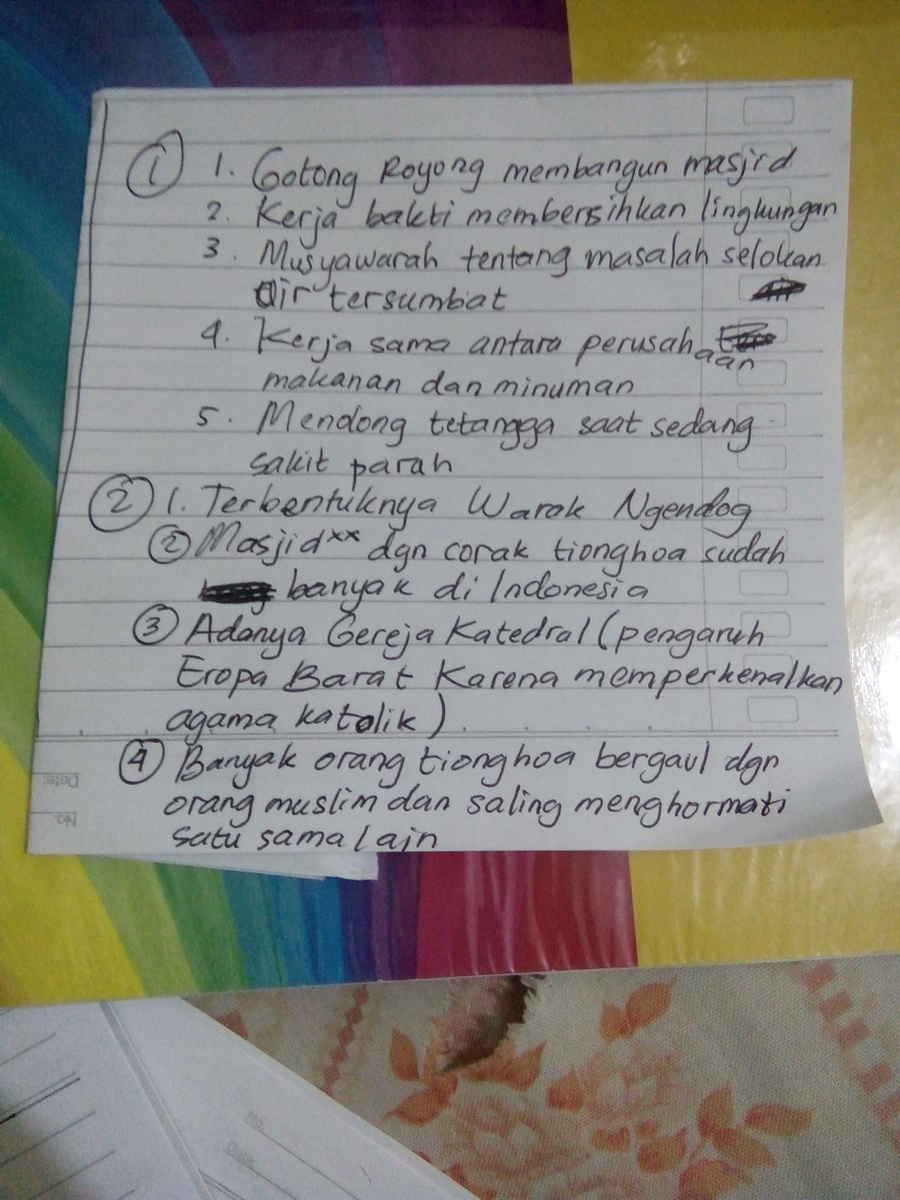 ① 1. Gotong Royong membangun masjid
2. Kerja bakti membersihkan lingkungan
3. Musyawarah tentang masalah selokan
air tersumbat
4. Kerja sama antara perusahaan
makanan dan minuman
5. Mendong tetangga saat sedang
sakit parah
② 1. Terbentuknya Warak Ngendog
② Masjid ** dgn corak tionghoa sudah
banyak di Indonesia
③ Adanya Gereja Katedral (pengaruh
Eropa Barat Karena memperkenalkan
agama katolik)
④ Banyak orang tionghoa bergaul dgn
orang muslim dan saling menghormati
satu sama lain
Date:
No.
No.
Date: